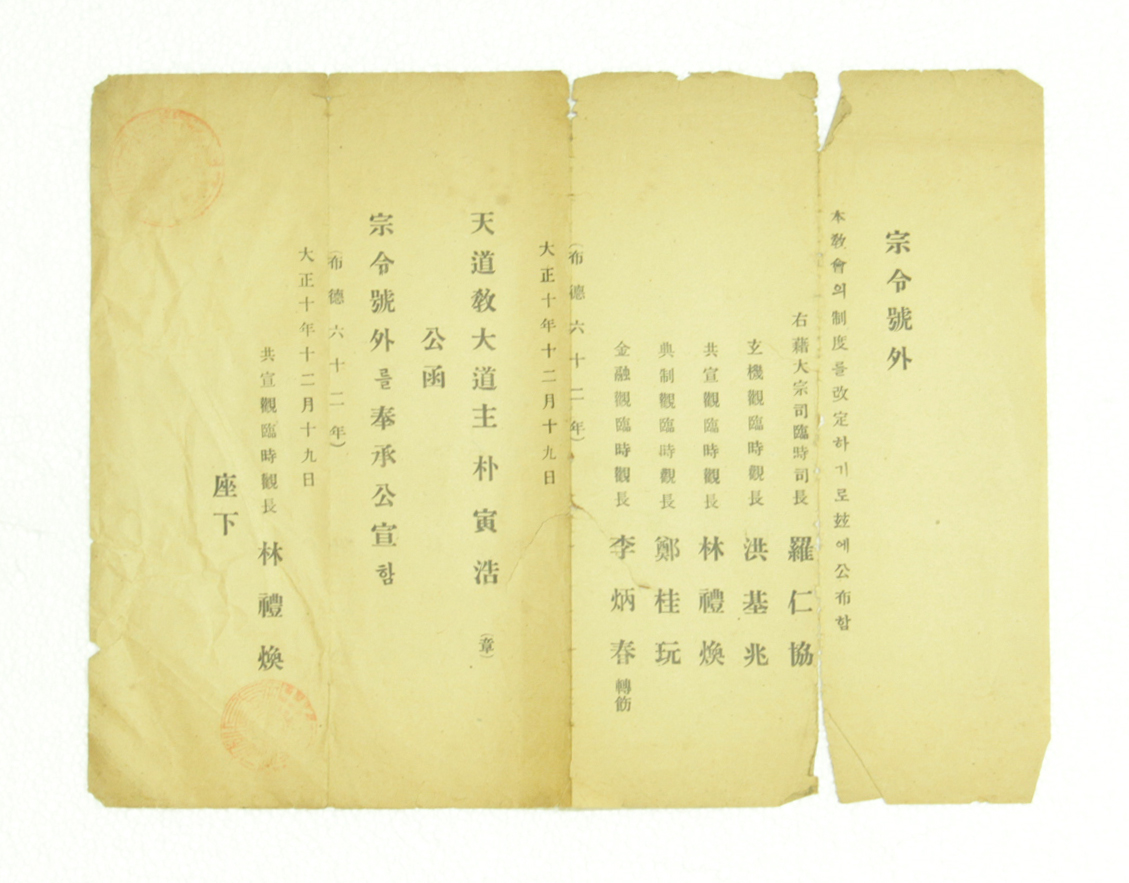 宗令號外
本敎會의制度를改定하기로玆에公布함
右藉大宗司臨時司長 羅仁協
玄機觀臨時觀長 洪基兆
共宣觀臨時觀長 林禮煥
典制觀臨時觀長 鄭桂玩
金融觀臨時觀長 李炳春 轉飭
(布德六十二年)
大正十年十二月十九日
天道敎大道主 朴寅浩 (章)
公函
宗令號外를奉承公宣함
(布德六十二年)
大正十年十二月十九日
共宣觀臨時觀長 林禮煥
座下